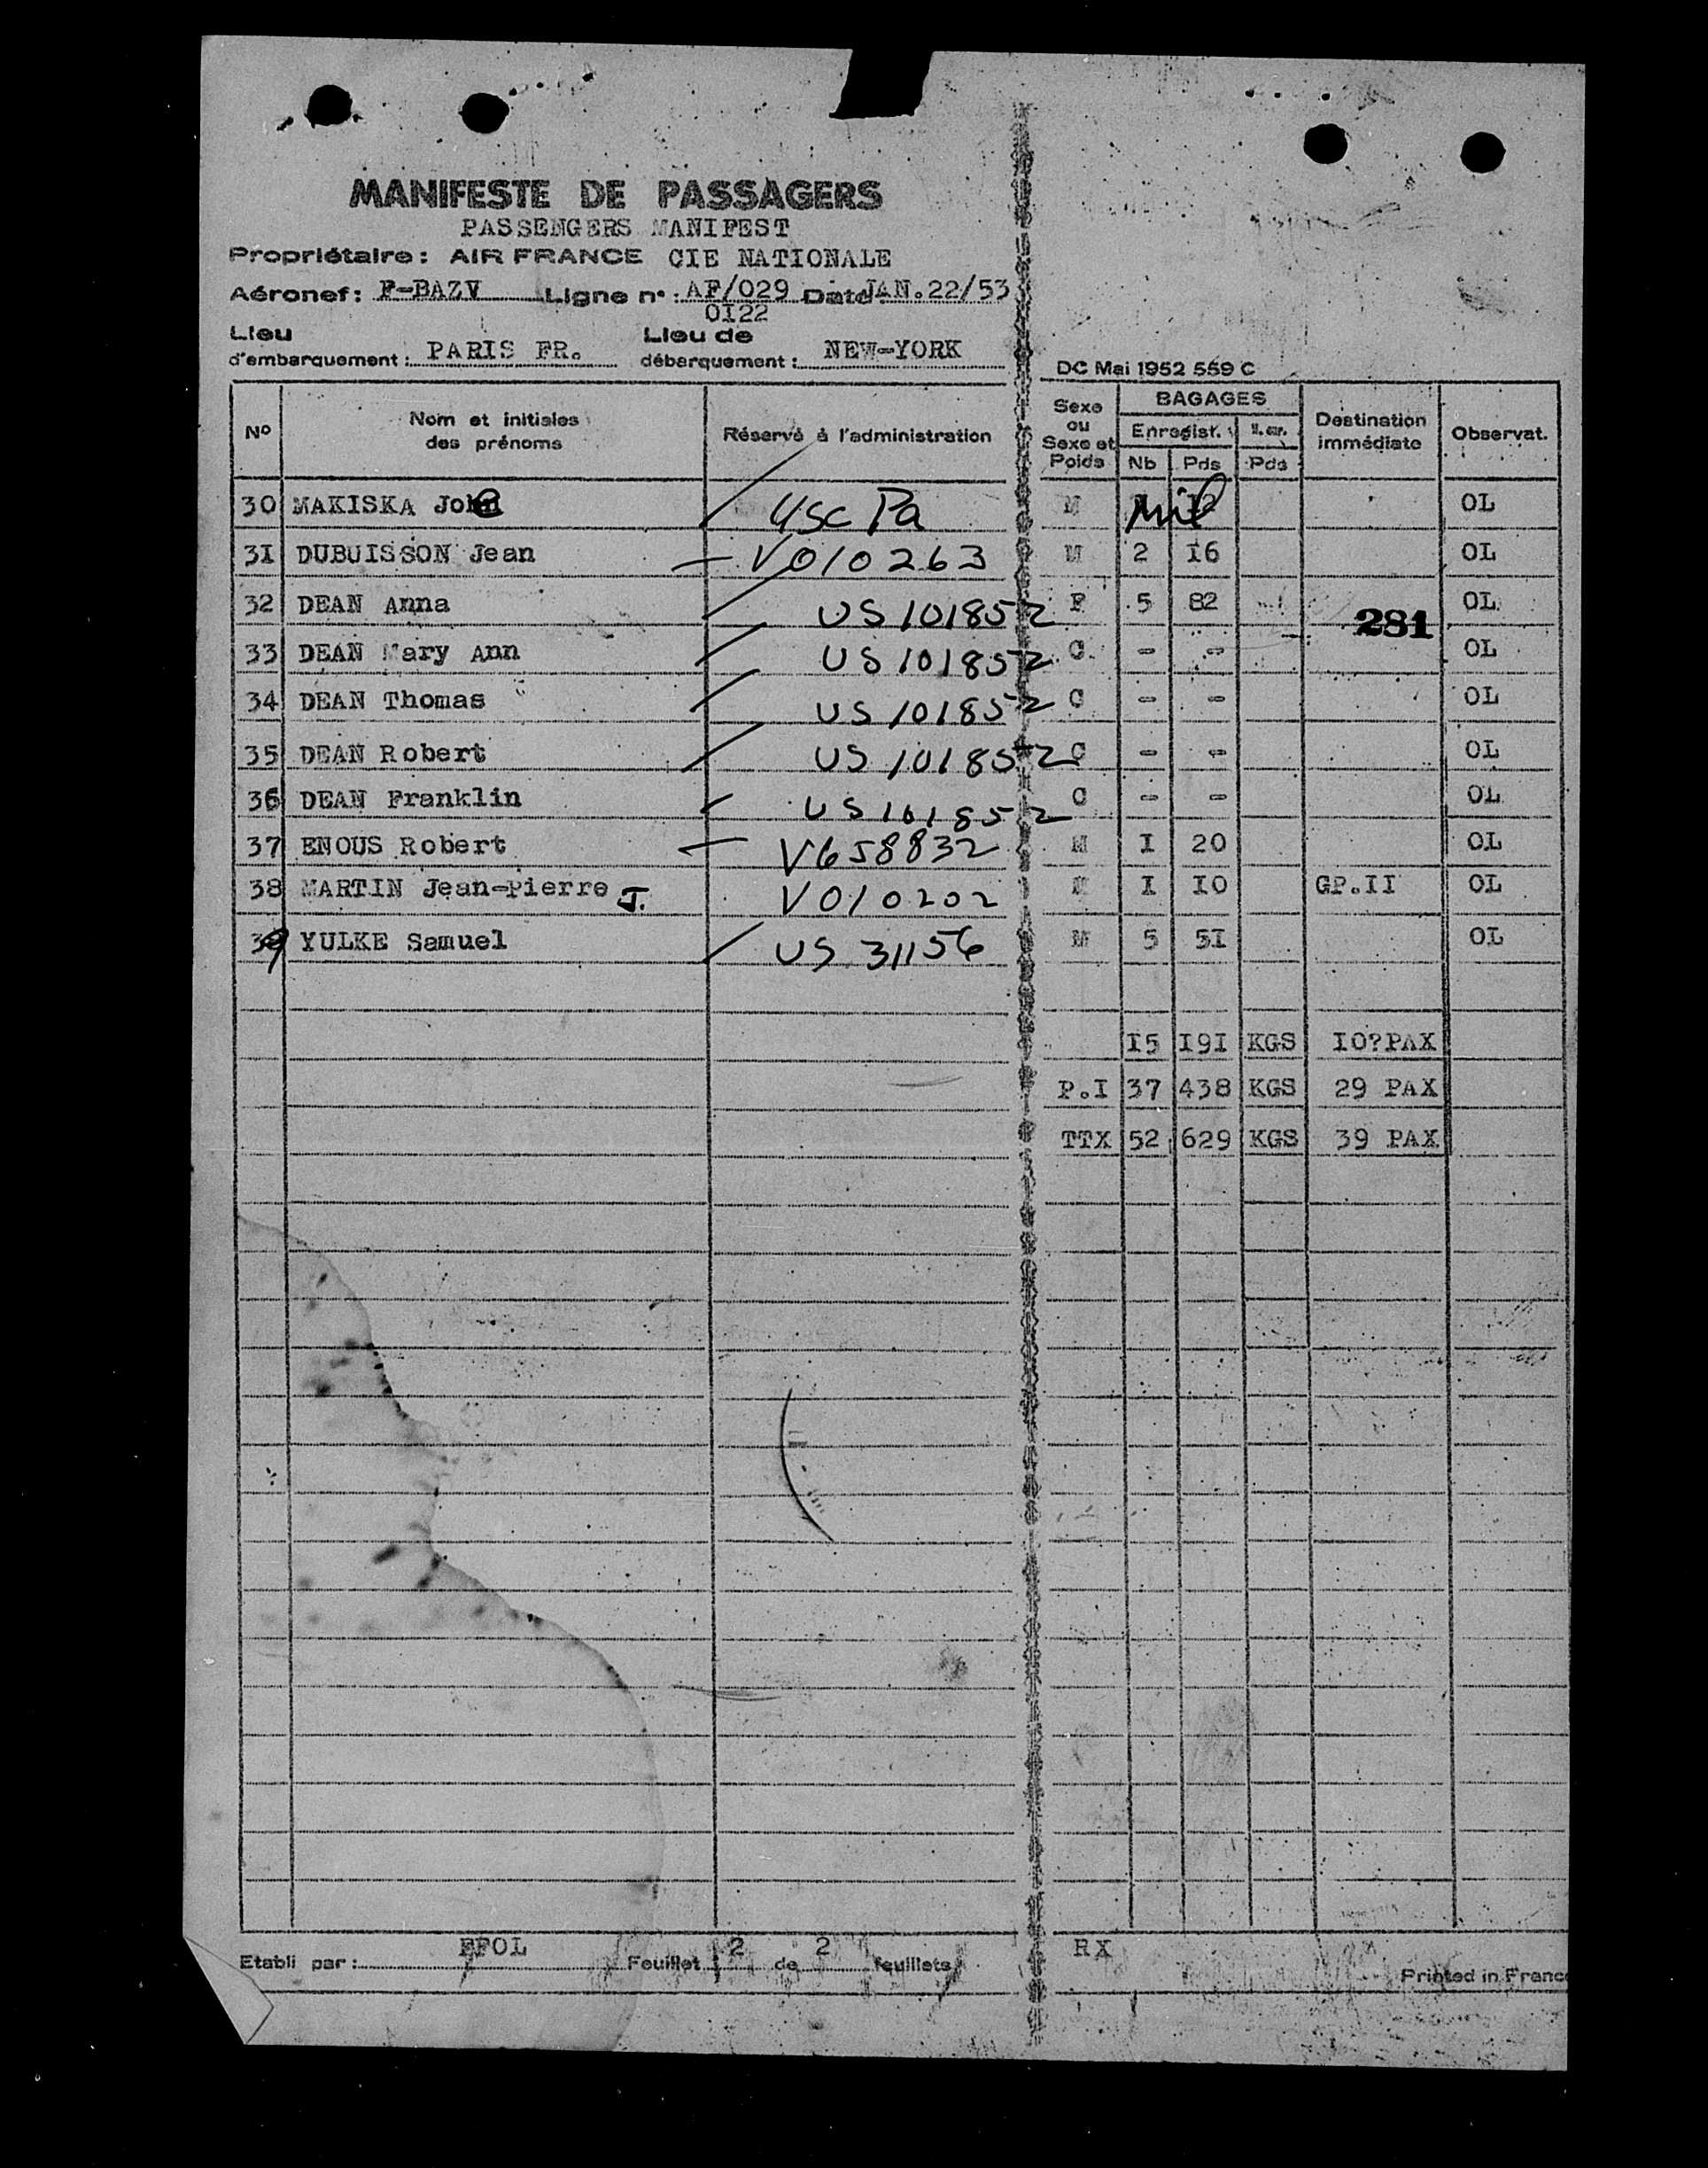 MANIFESTE DE PASSAGERS
PASSENGERS MANIFEST
Propriétaire: AIR FRANCE CIE NATIONALE
Aéronef: F-BAZV Ligne n°: AF/029 Date JAN.22/53
0I22
Lieu d'embarquement: PARIS FR. Lieu de débarquement: NEW-YORK
DC Mai 1952 559 C
N° Nom et initiales des prénoms Réservé à l'administration Sexe ou Sexe et Poids BAGAGES Enregist. Nb Pds Pds Destination immédiate Observat.
30 MAKISKA John USC Pa M Mil 12 OL
3I DUBUISSON Jean V010263 M 2 I6 OL
32 DEAN Anna US101852 F 5 82 OL
281
33 DEAN Mary Ann US101852 C - - OL
34 DEAN Thomas US101852 C - - OL
35 DEAN Robert US101852 C - - OL
36 DEAN Franklin US101852 C - - OL
37 ENOUS Robert V658832 M I 20 OL
38 MARTIN Jean-Pierre J. V010202 M I IO GP.II OL
39 YULKE Samuel US 31156 M 5 5I OL
I5 I9I KGS IO?PAX
P.I 37 438 KGS 29 PAX
TTX 52 629 KGS 39 PAX
Etabli par: FFOL Feuillet: 2 de 2 feuillets RX
Printed in France